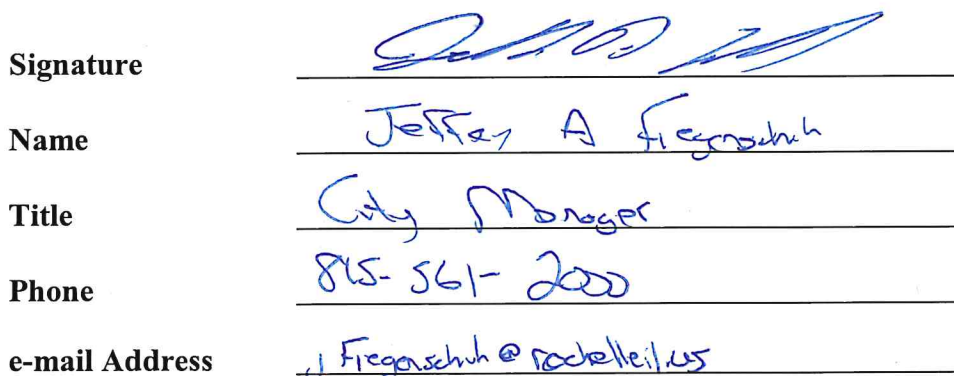 Signature
Name Jeffrey A Fiegenschuh
Title City Manager
Phone 815-561-2000
e-mail Address jfiegenschuh@rochelleil.us